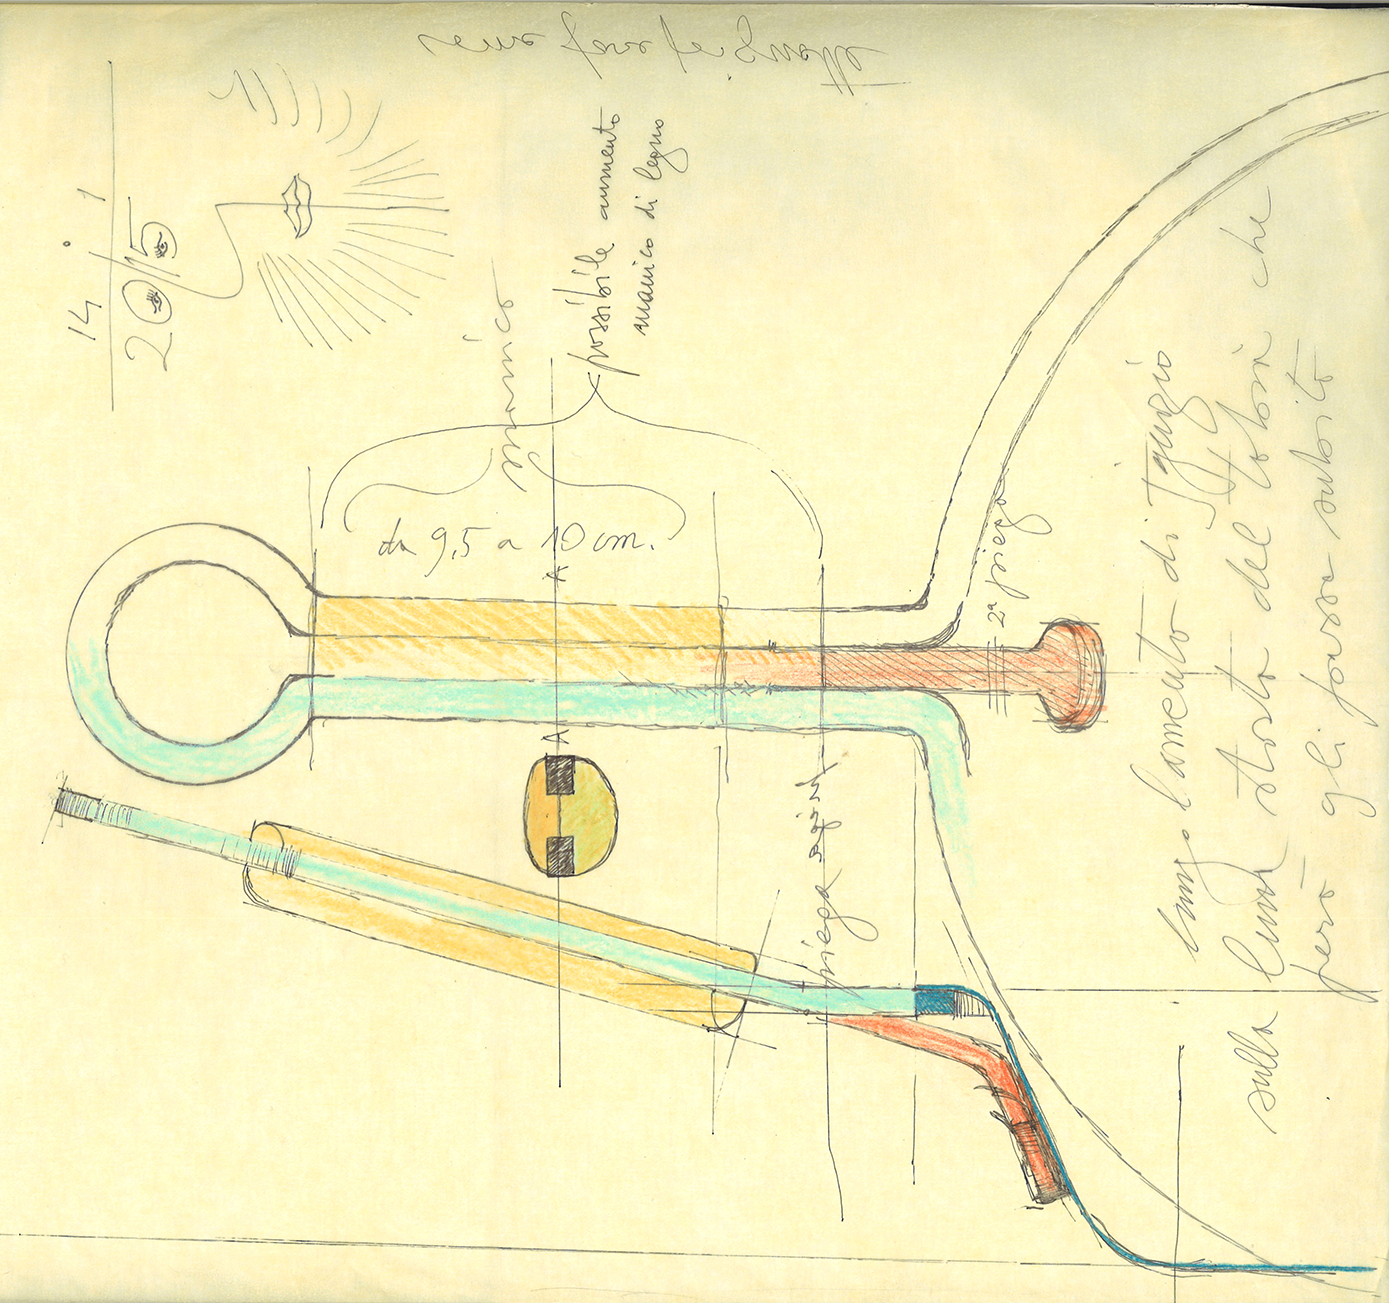 14 1
2015
possibile aumento
manico di legno
manico
da 9,5 a 10 cm.
A
A
2ª piega
piega
lungo lamento di Ignazio
sulla luna storta del che
però gli passa subito